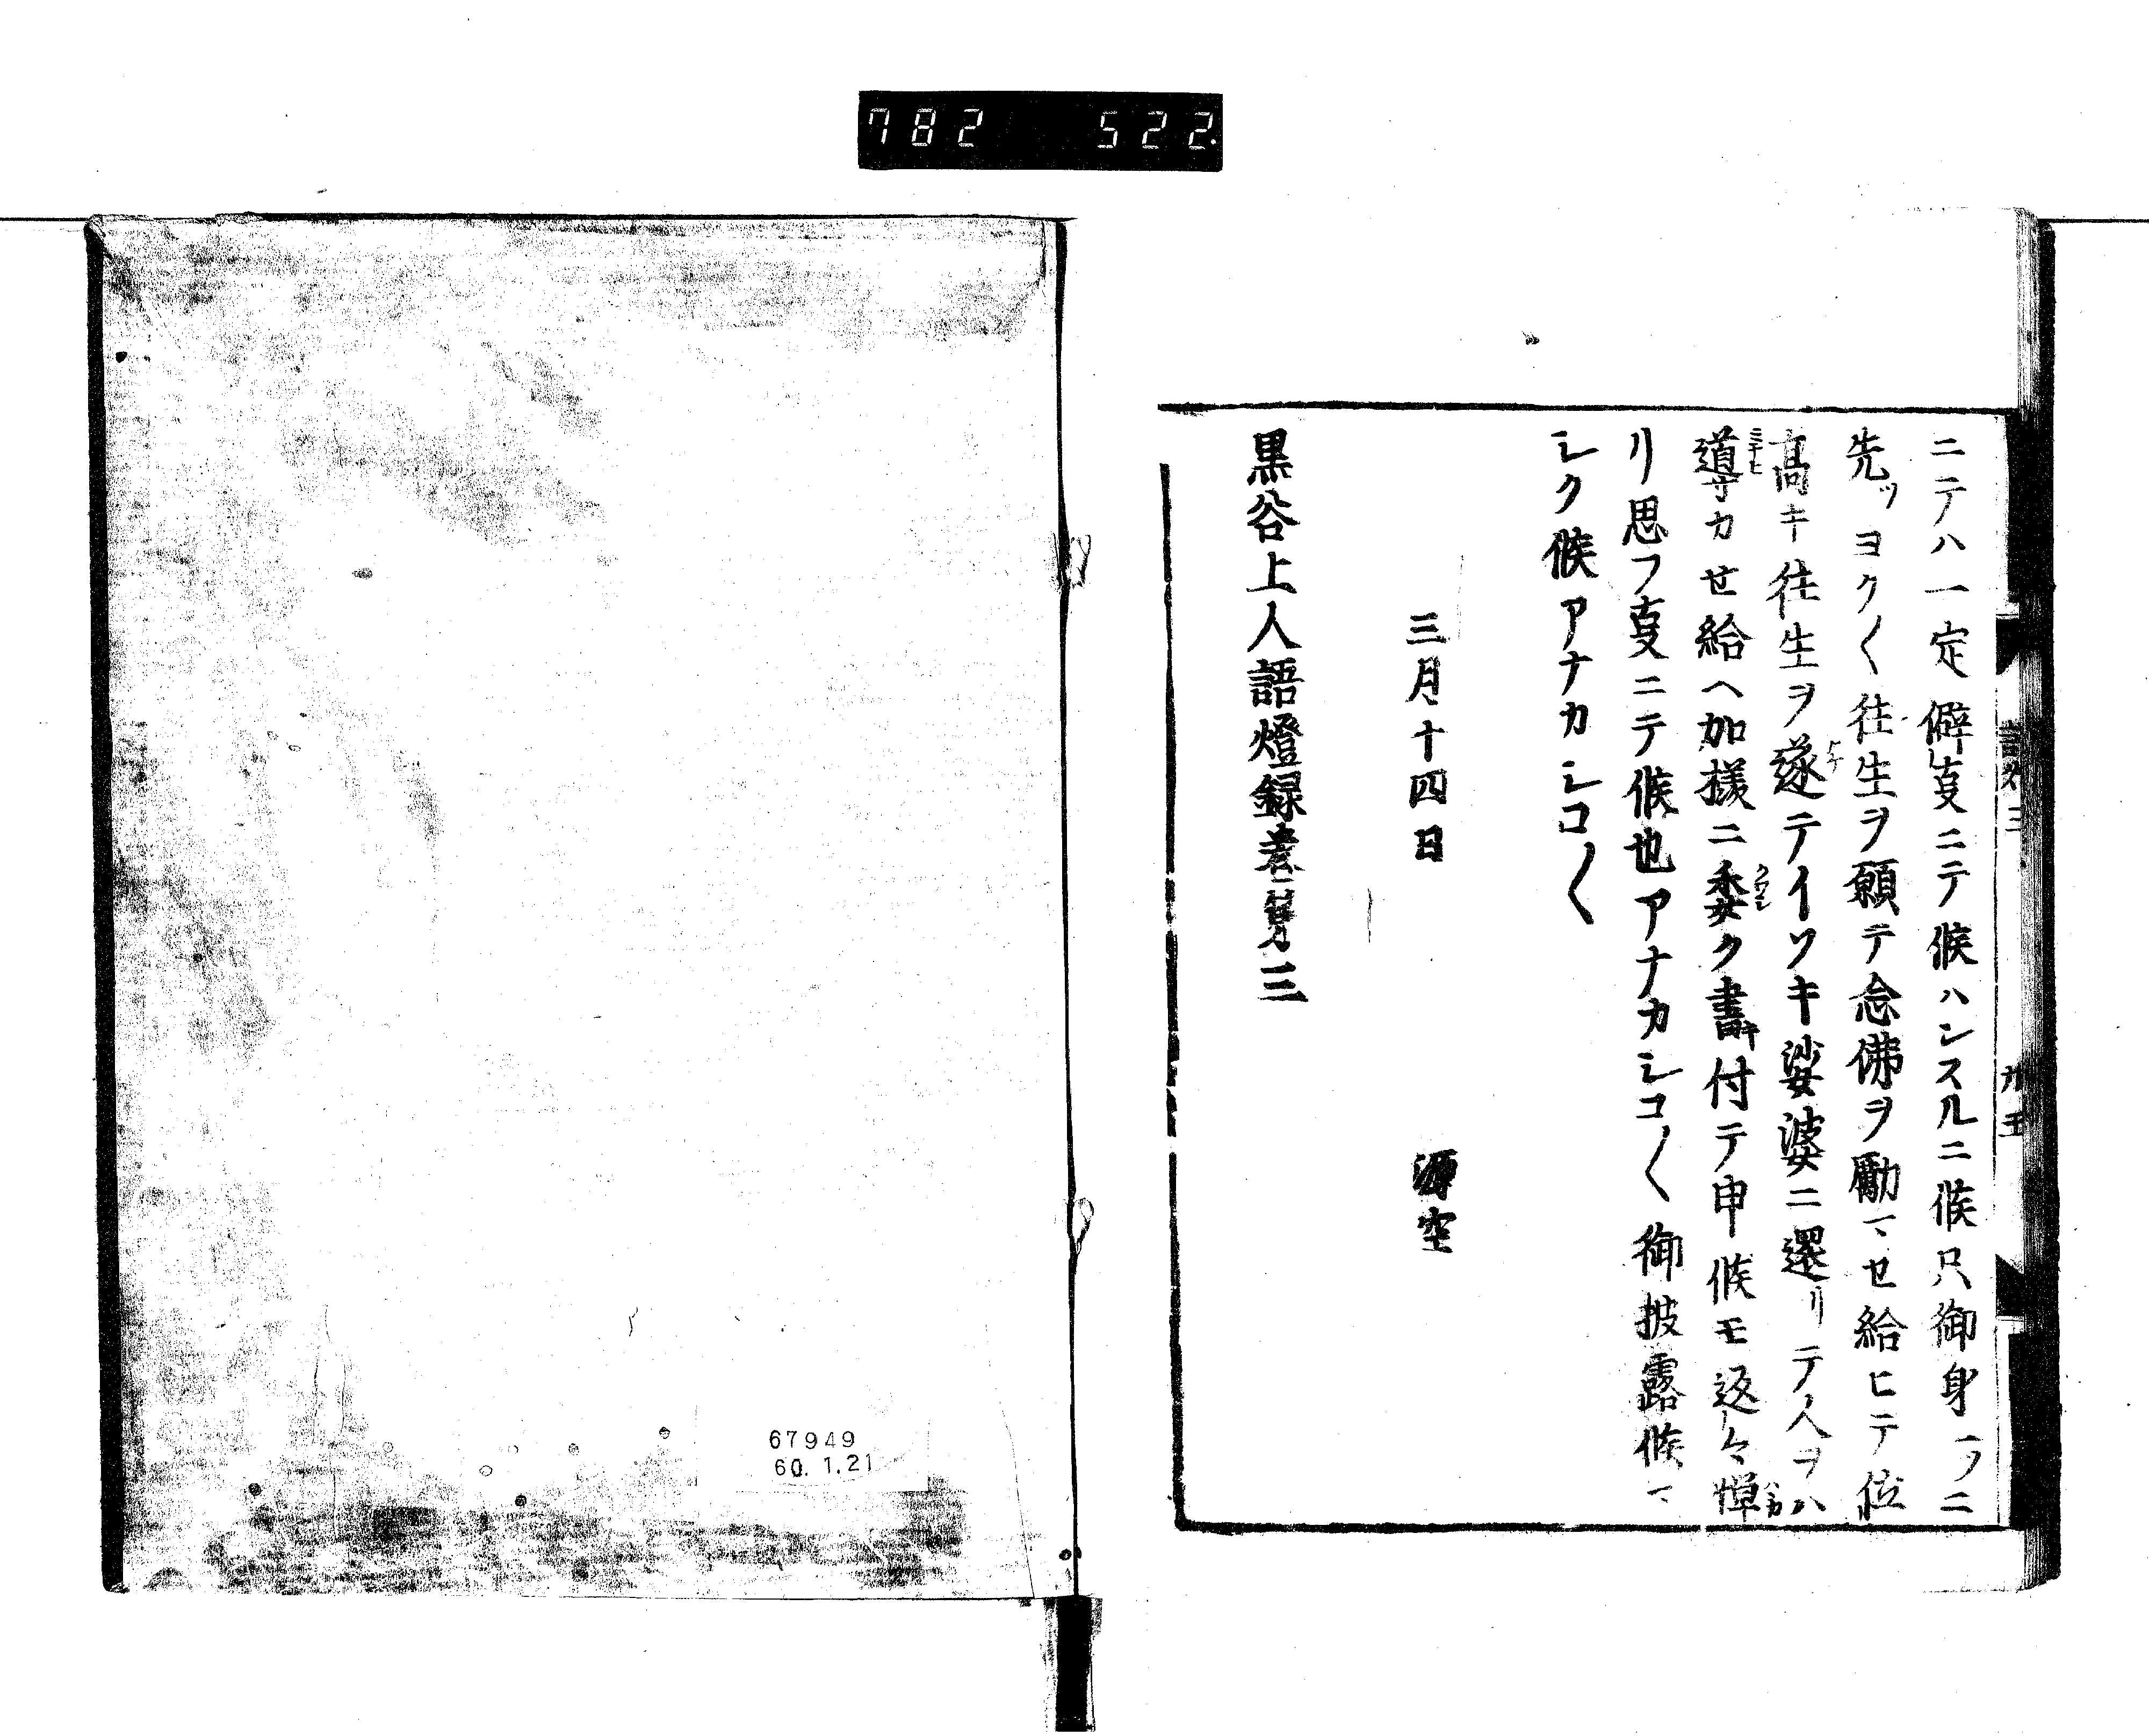 782 522
ニテハ一定僻夏ニテ候ハンスルニ候只御身一ツニ
先ツヨク〱往生ヲ願テ念佛ヲ勵マセ給ヒテ位
髙キ往生ヲ遂テイソキ娑婆ニ還リテ人ヲハ
導カせ給ヘ加様ニ委ク書キ付テ申候モ返々憚
リ思フ夏ニテ候也アナカシコ〱御披露候マ
シク候アナカシコ〱
三月十四日 源空
黒谷上人語燈録巻第三
67949
60. 1.21